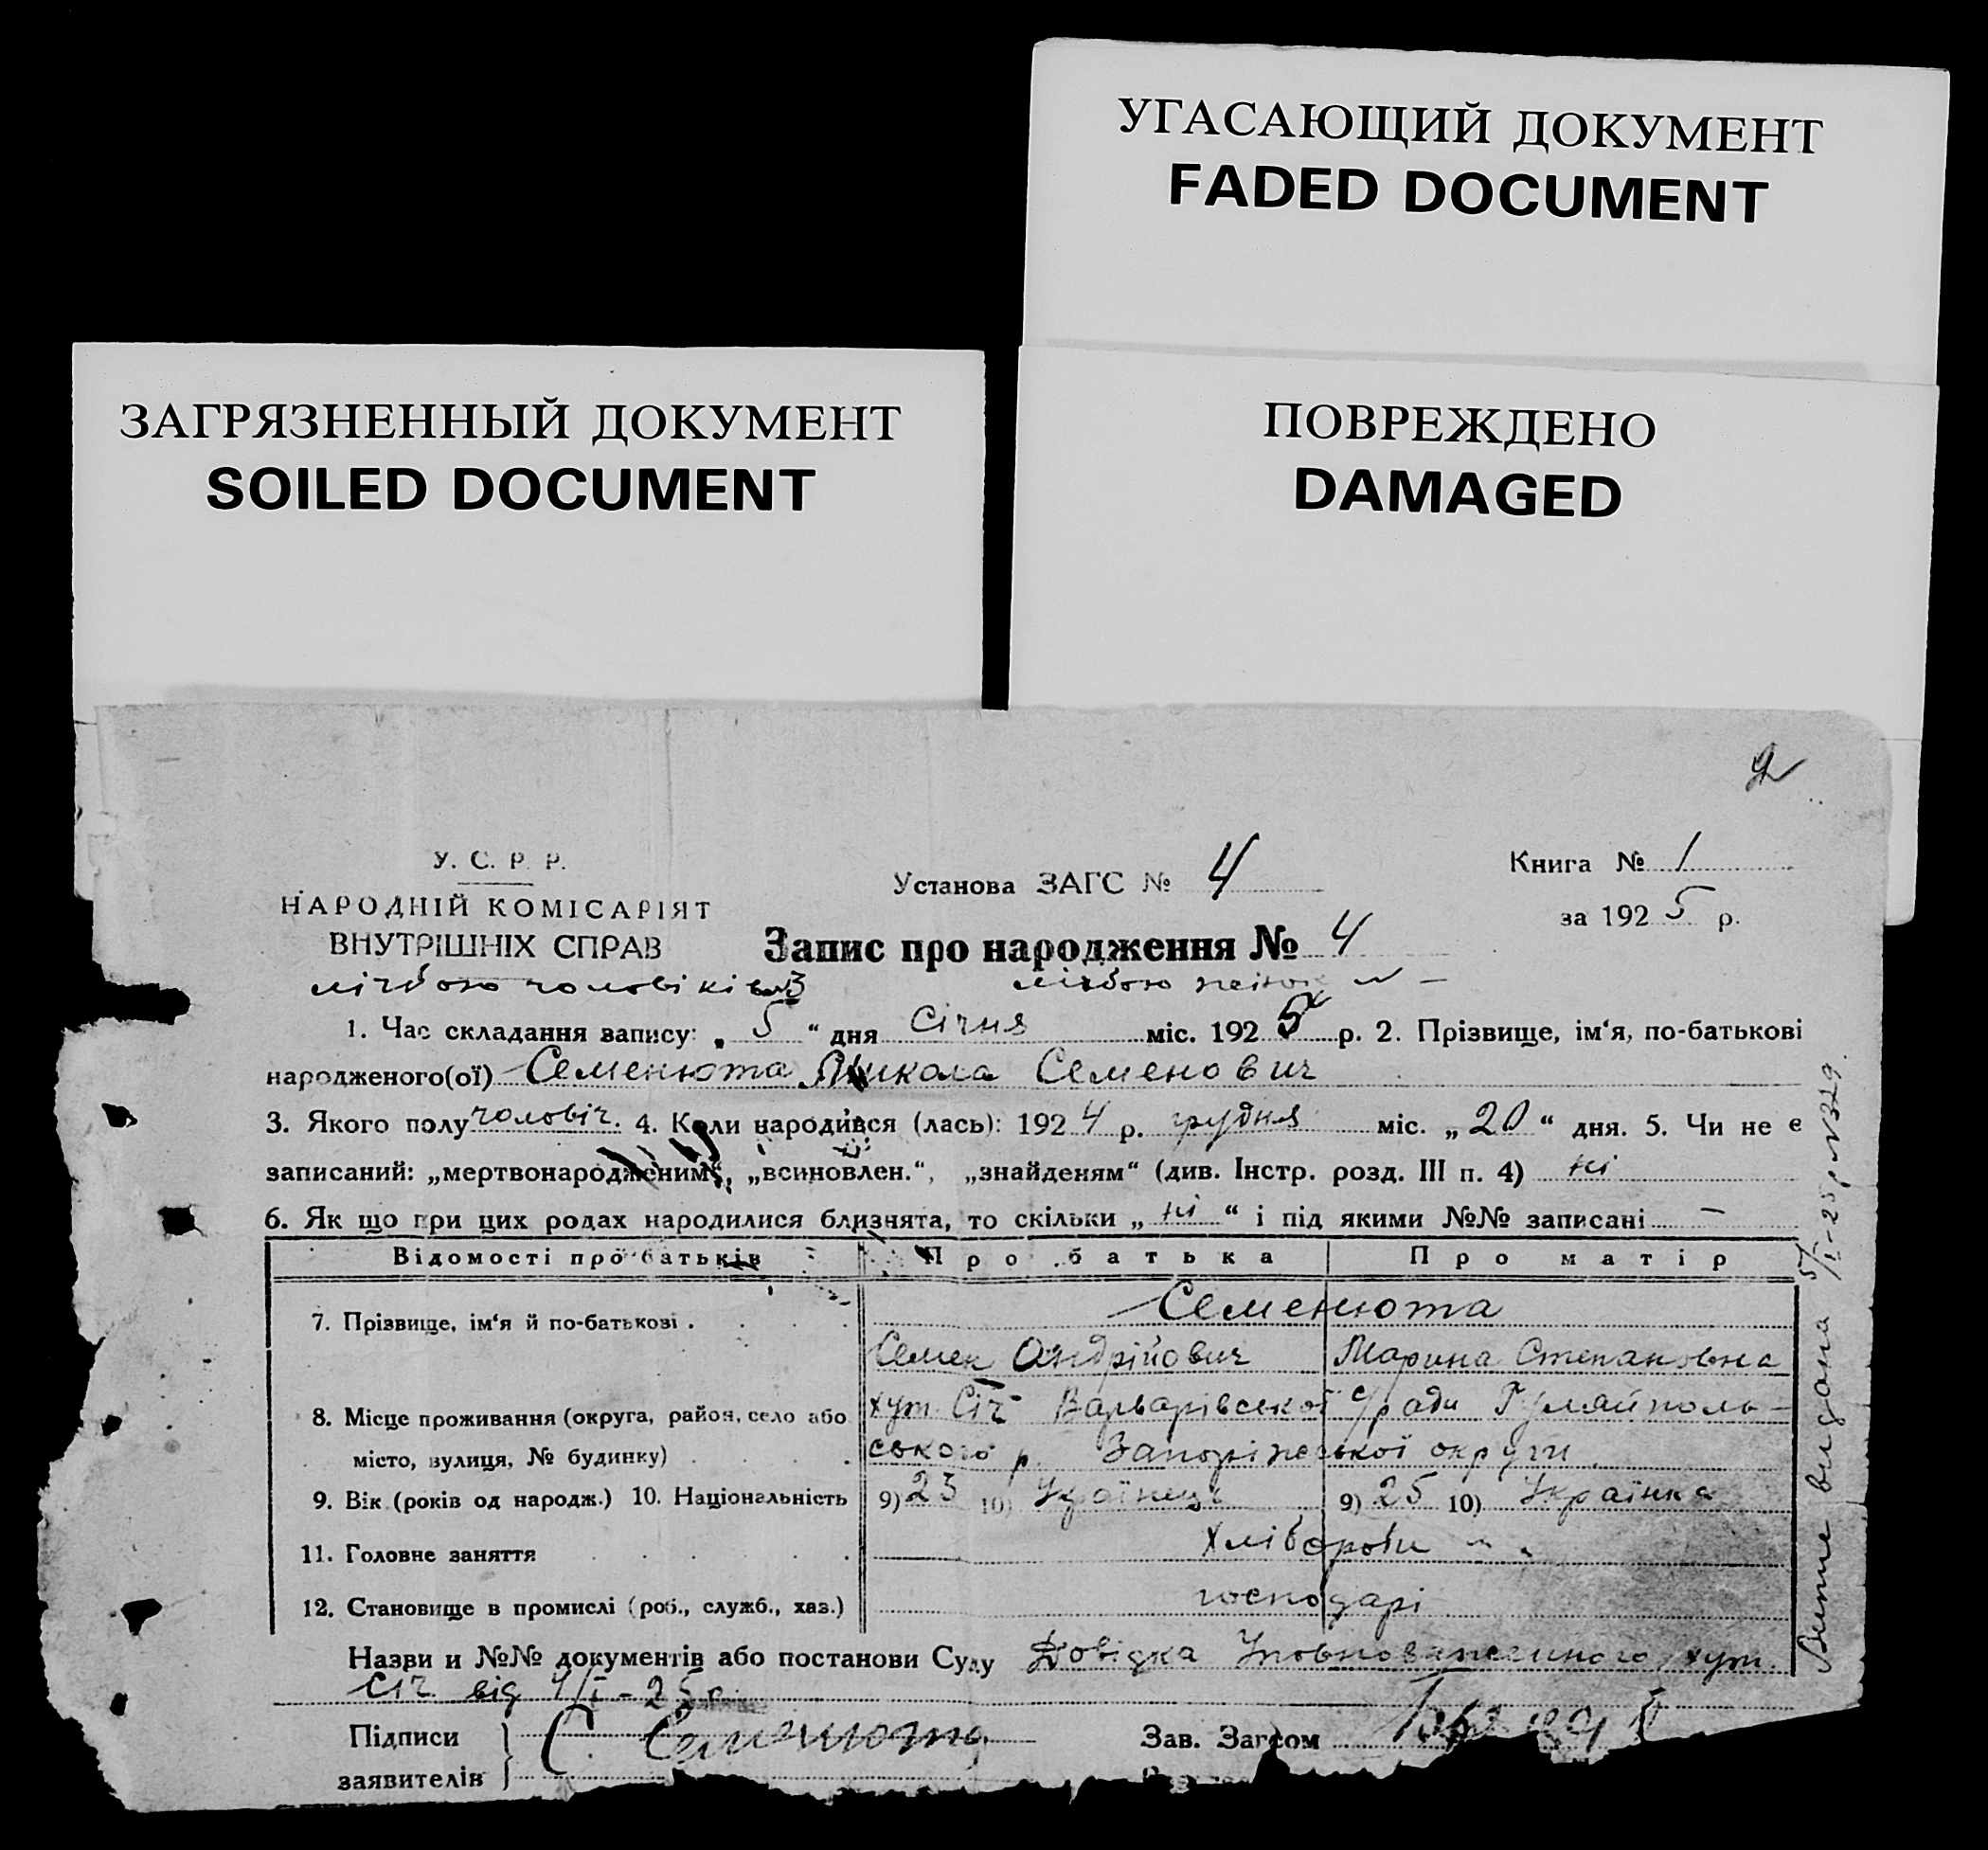 УГАСАЮЩИЙ ДОКУМЕНТ
FADED DOCUMENT
ЗАГРЯЗНЕННЫЙ ДОКУМЕНТ
SOILED DOCUMENT
ПОВРЕЖДЕНО
DAMAGED
2
У. С. Р. Р.
НАРОДНІЙ КОМІСАРІЯТ
ВНУТРІШНІХ СПРАВ
Установа ЗАГС № 4
Книга № 1
за 1925 р.
Запис про народження № 4
лічбою чоловіків 3 лічбою жінок № —
1. Час складання запису: „ 5 “ дня Січня міс. 1925 р. 2. Прізвище, ім‘я, по-батькові
народженого(ої) Семенюта Микола Семенович
3. Якого полу чоловіч. 4. Коли народився (лась): 1924 р. грудня міс. „ 20 “ дня. 5. Чи не є
записаний: „мертвонародженим“, „всиновлен.“, „знайденям“ (див. Інстр. розд. III п. 4) ні
6. Як що при цих родах народилися близнята, то скільки „ ні “ і під якими №№ записані —
Відомості про батьків Про батька Про матір
7. Прізвище, ім‘я й по-батькові . Семенюта
Семен Андрійович Марина Степановна
8. Місце проживання (округа, район, село або хут. Січ Варварівської с/ради Гуляйполь-
місто, вулиця, № будинку) ського р. Запоріжської округи.
9. Вік (років од народж.) 10. Національність 9) 23 10) Українець 9) 25 10) Українка
11. Головне заняття Хлібороби
12. Становище в промислі (роб., служб., хаз.) господарі
Назви и №№ документів або постанови Суду Довідка Уповноваженного хут.
Січ від 4/I – 25 р.
Підписи
заявителів
С. Семенюта
Зав. Загсом
Витяг видана 5/I–25 р № 329.